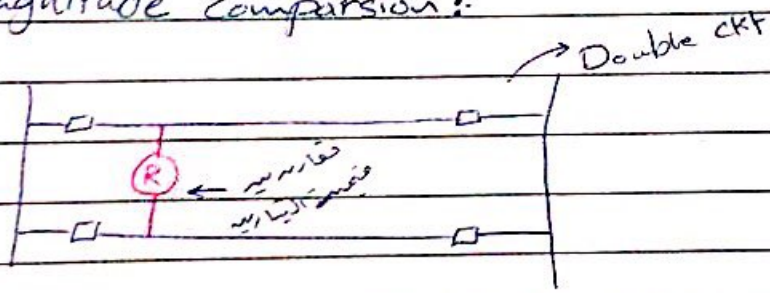 agnitude comparsion:
Double ckt
R
مقارنه بين
قيمت التيارين